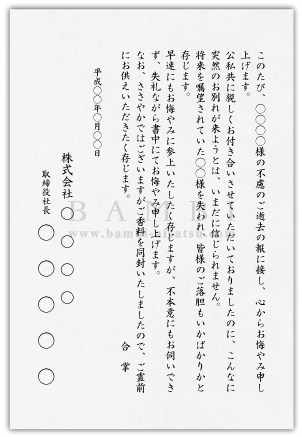 このたび、〇〇〇〇様の不慮のご逝去の報に接し、心からお悔やみ申し
上げます。
公私共に親しくお付き合いさせていただいておりましたのに、こんなに
突然のお別れが来ようとは、いまだに信じられません。
将来を嘱望されていた〇〇様を失われ、皆様のご落胆もいかばかりかと
存じます。
早速にもお悔やみに参上いたしたく存じますが、不本意にもお伺いでき
ず、失礼ながら書中にてお悔やみ申し上げます。
なお、ささやかではございますがご香料を同封いたしましたので、ご霊前
にお供えいただきたく存じます。
合掌
平成〇〇年〇月〇〇日
株式会社 〇〇〇〇
取締役社長 〇〇〇〇〇〇